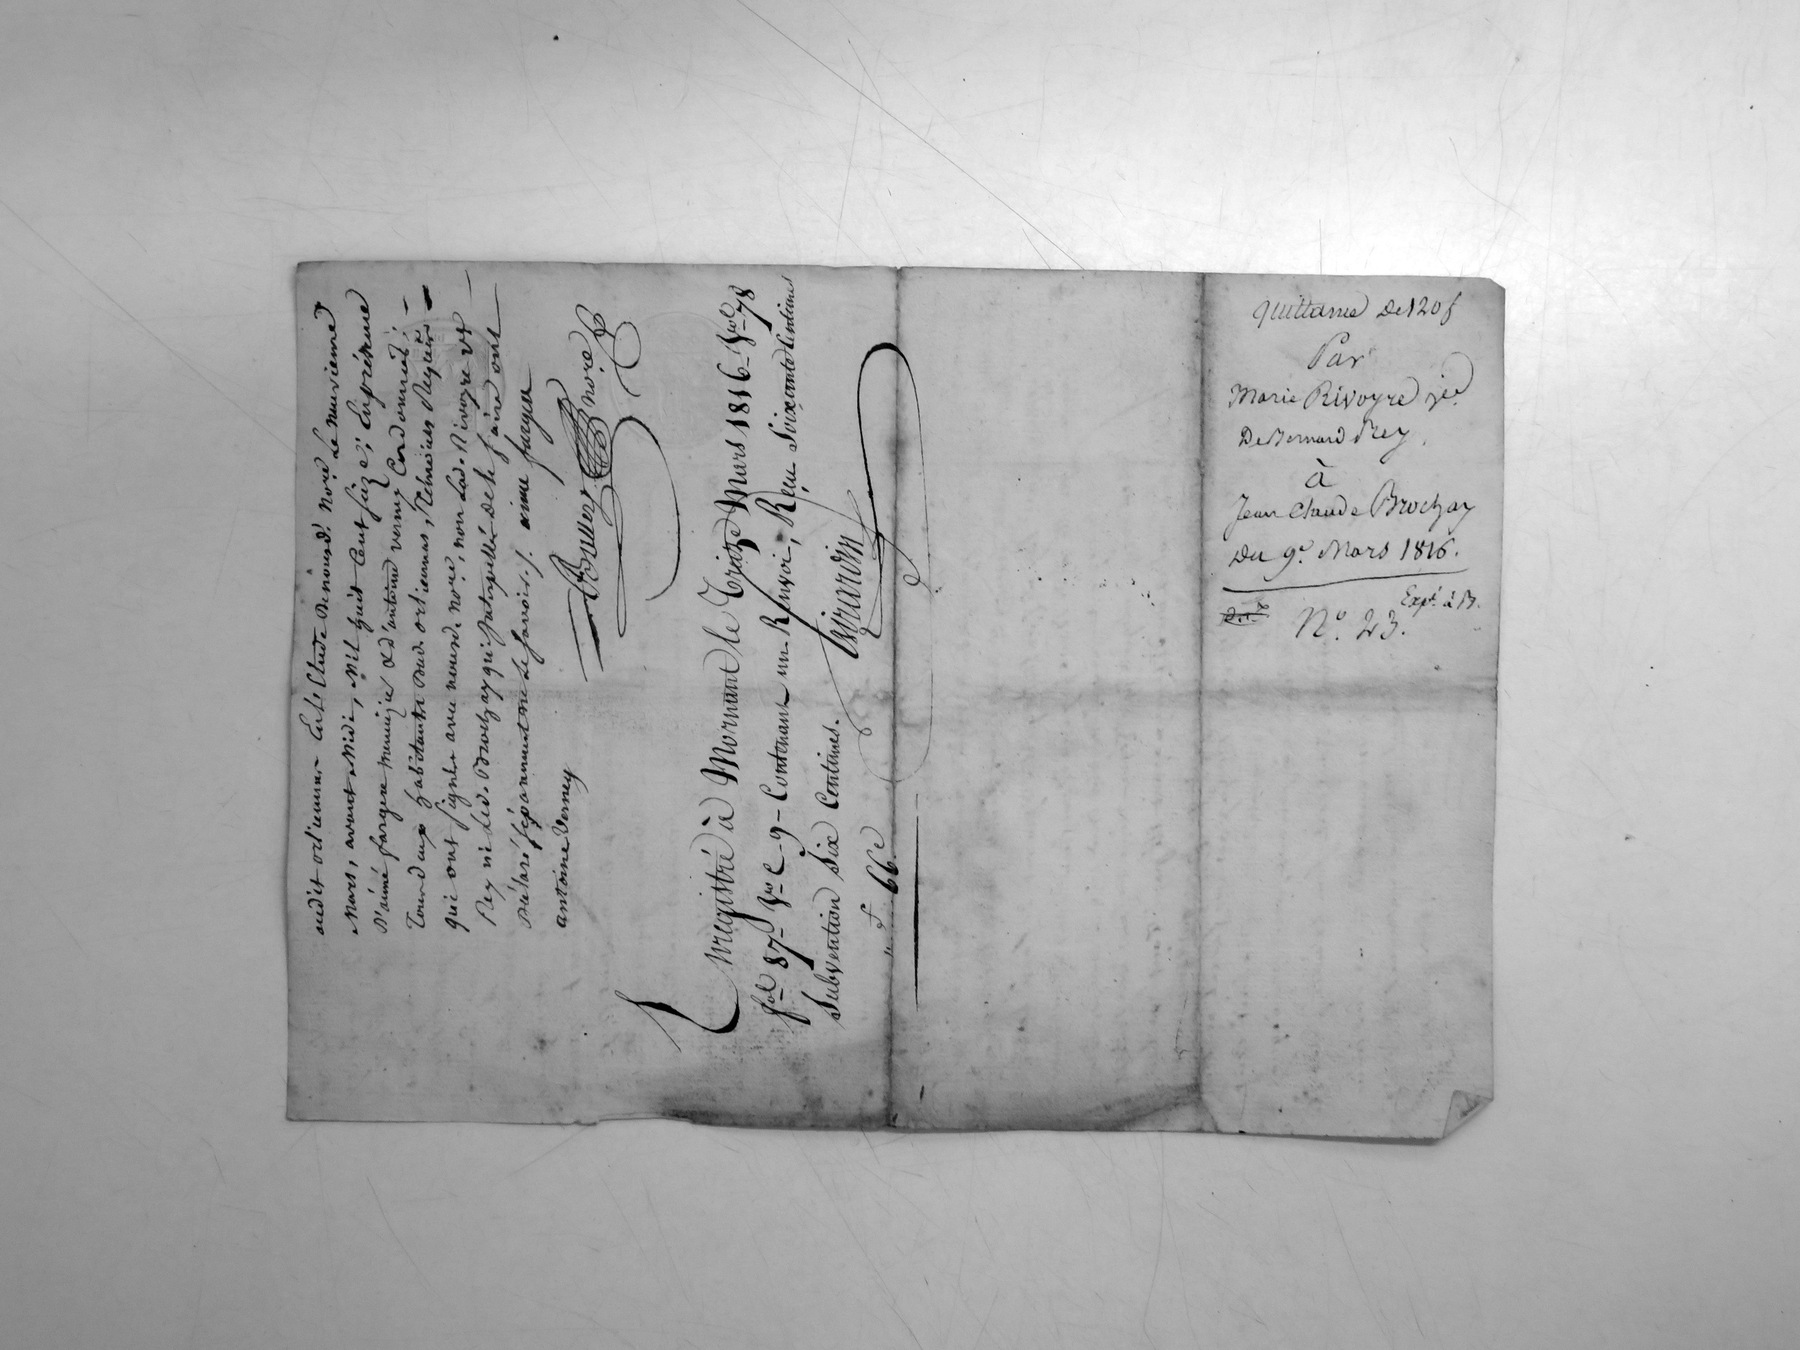 audit orlienas En l'Etude de nousd. Nore. Le neuvieme
Mars, avant Midi, Mil huit Cent Sieze; En présence
d'aimé fargere menuizier & d'antoine verney Cordonnier;
Tous deux habitants dud. orlienas, Témoins Requis
qui ont signé avec nousd. nore., non lad. Rivoyre ve.
Rey ni led. Brochay qui, interpellés de le faire ont
déclaré séparement ne le savoir./. aime fargere
antoine Verney
nore
Enregistré à Mornant le Treize Mars 1816 fol. 78
fol. 87 Vo C. 9 Contenant un Renvoi, Reçu Soixante Centimes
Subvention Six Centimes. Girardin
" f 66c
Quittance de 120f
Par
Marie Rivoyre ve.
De Bernard Rey,
à
Jean Claude Brochay
Du 9e. Mars 1816.
Expt. à B.
No. 23.